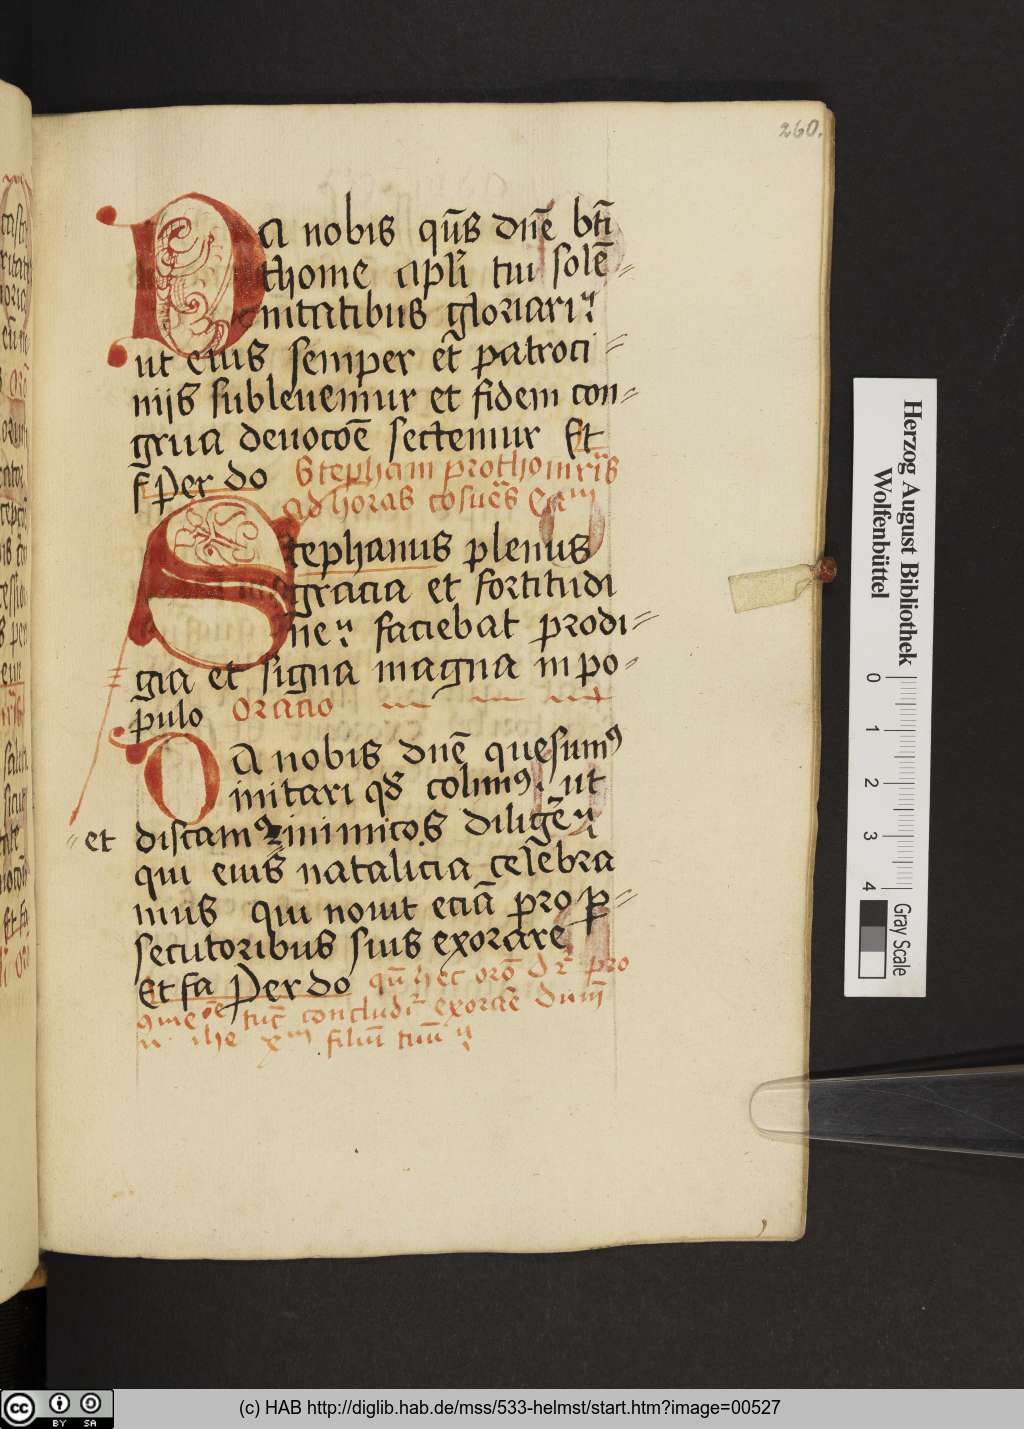 260.
Da nobis qūs dn̄e bt̄i
thome apl̄i tui solē⸗
nitatibus gloriari
ut eius semper et patroci⸗
nijs subleuemur et fidem con⸗
grua deuocōe sectemur Et
f Per do Stephani prothomr̄is
ad horas cōsuēs Eam
Stephanus plenus
gracia et fortitudi
ne faciebat prodi⸗
gia et signa magna in po⸗
pulo Oracio
Da nobis dn̄e quesumꝯ
imitari qd̄ colimꝯ ut
et discamꝯ inimicos diligē
qui eius natalicia celebra
mus qui nouit eciā pro ꝑ⸗
secutoribus suis exorare
Et fa Per do qn̄ hec orō dr̄ pro
tūc concludir̄ exorāe dn̄m
n ihe xm filiū tuū
Herzog August Bibliothek
Wolfenbüttel
0 1 2 3 4
Gray Scale
cc BY SA
(c) HAB http://diglib.hab.de/mss/533-helmst/start.htm?image=00527